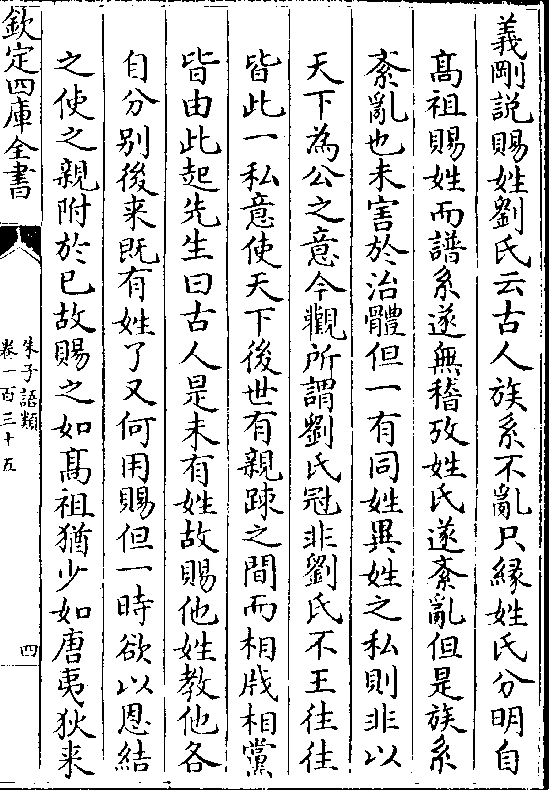 義剛説賜姓劉氏云古人族系不亂只縁姓氏分明自
髙祖賜姓而譜系遂無稽攷姓氏遂紊亂但是族系
紊亂也未害於治體但一有同姓異姓之私則非以
天下為公之意今觀所謂劉氏冠非劉氏不王往往
皆此一私意使天下後世有親疎之間而相戕相黨
皆由此起先生曰古人是未有姓故賜他姓教他各
自分别後来既有姓了又何用賜但一時欲以恩結
之使之親附於已故賜之如髙祖猶少如唐夷狄来
欽定四庫全書
朱子語類
卷一百三十五
四